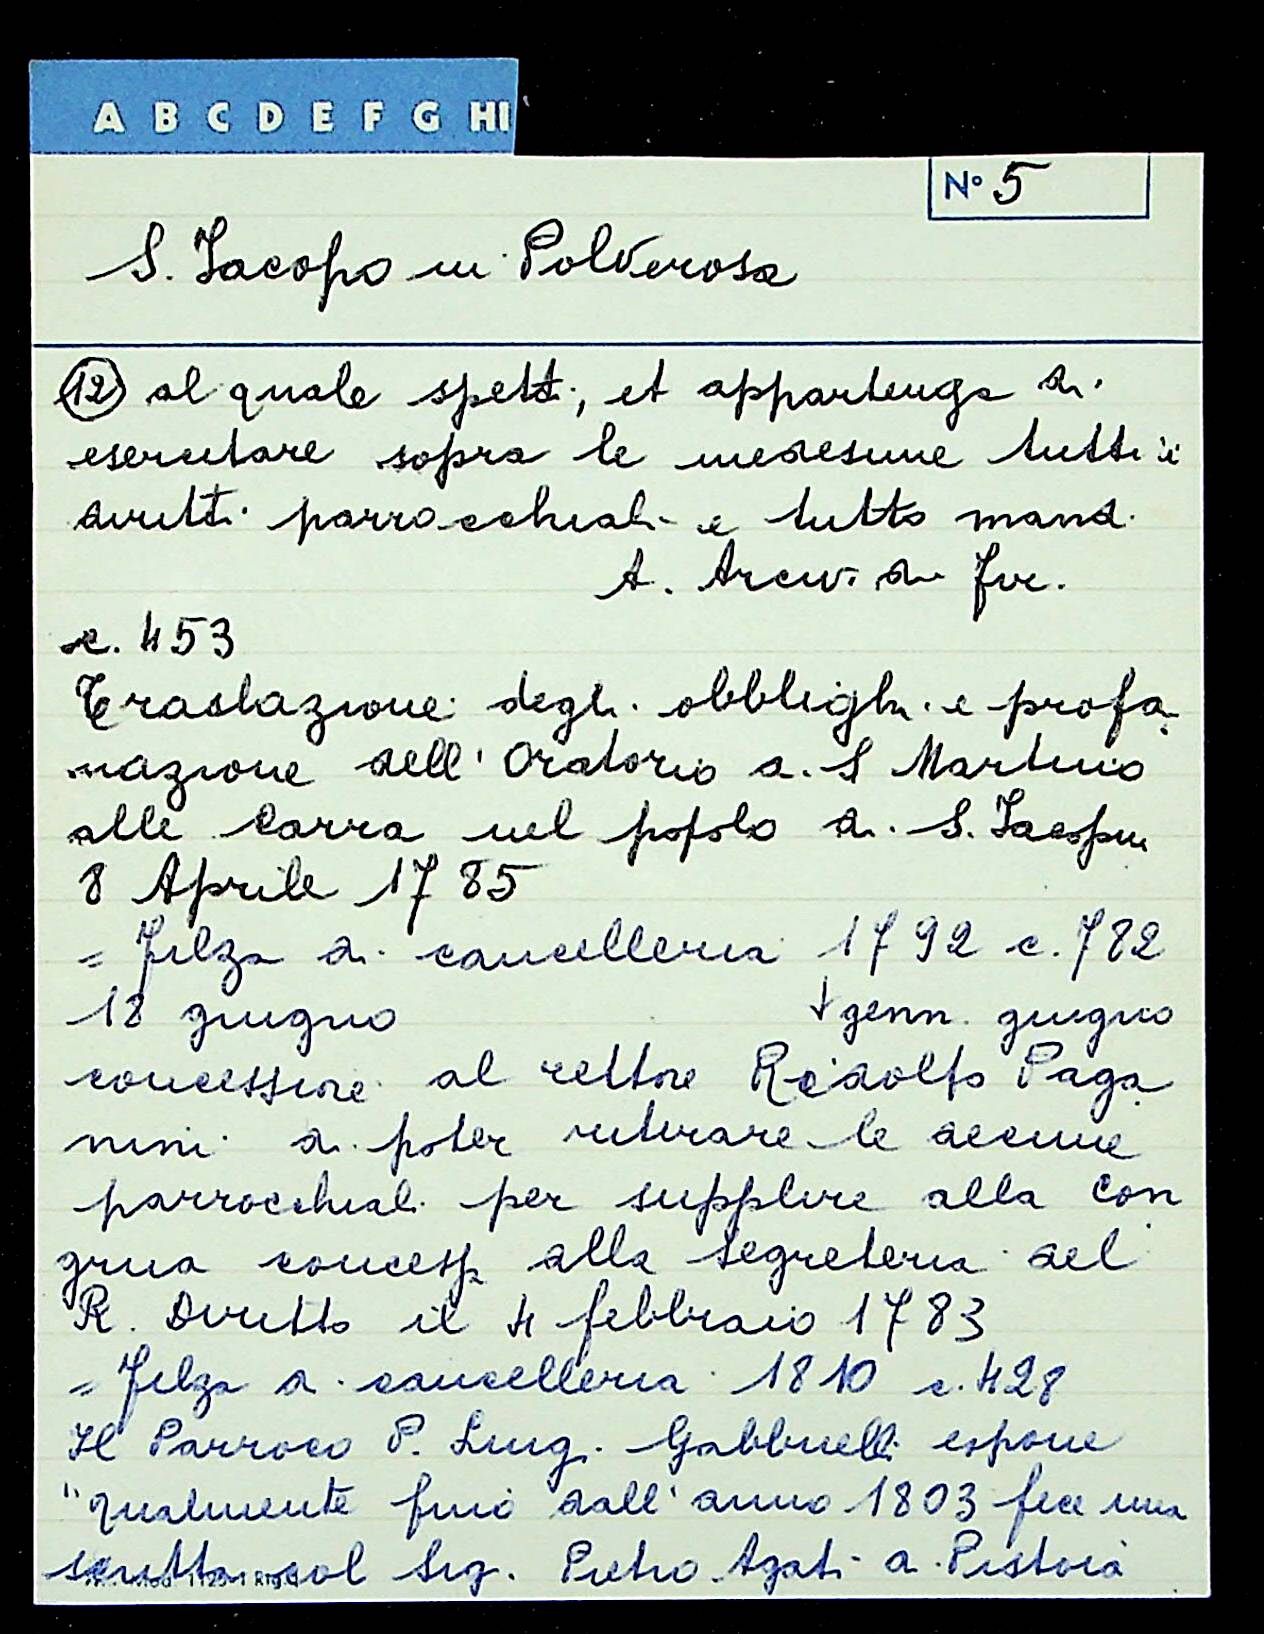 A B C D E F G HI
N° 5
S. Jacopo in Polverosa
(12) al quale spetti, et appartenga di
esercitare sopra le medesime tutti i
diritti parrocchiali e tutto mand.
A. Arciv. di Fir.
c. 453
Traslazione degli obblighi e profa
nazione dell'Oratorio di S Martino
alle Carra nel popolo di S. Jacopin
8 Aprile 1785
= Filza di cancelleria 1792 c. 782
18 giugno ↓ genn. giugno
concessione al rettore Ridolfo Paga
nini di poter ritirare le decime
parrocchiali per supplire alla con
grua concess. alla Segreteria del
R. Diritto il 4 febbraio 1783
= Filza di cancelleria 1810 c. 428
Il Parroco P. Luigi Gabbrielli espone
"qualmente fino dall'anno 1803 fece una
scritta col Sig. Pietro Agati di Pistoia